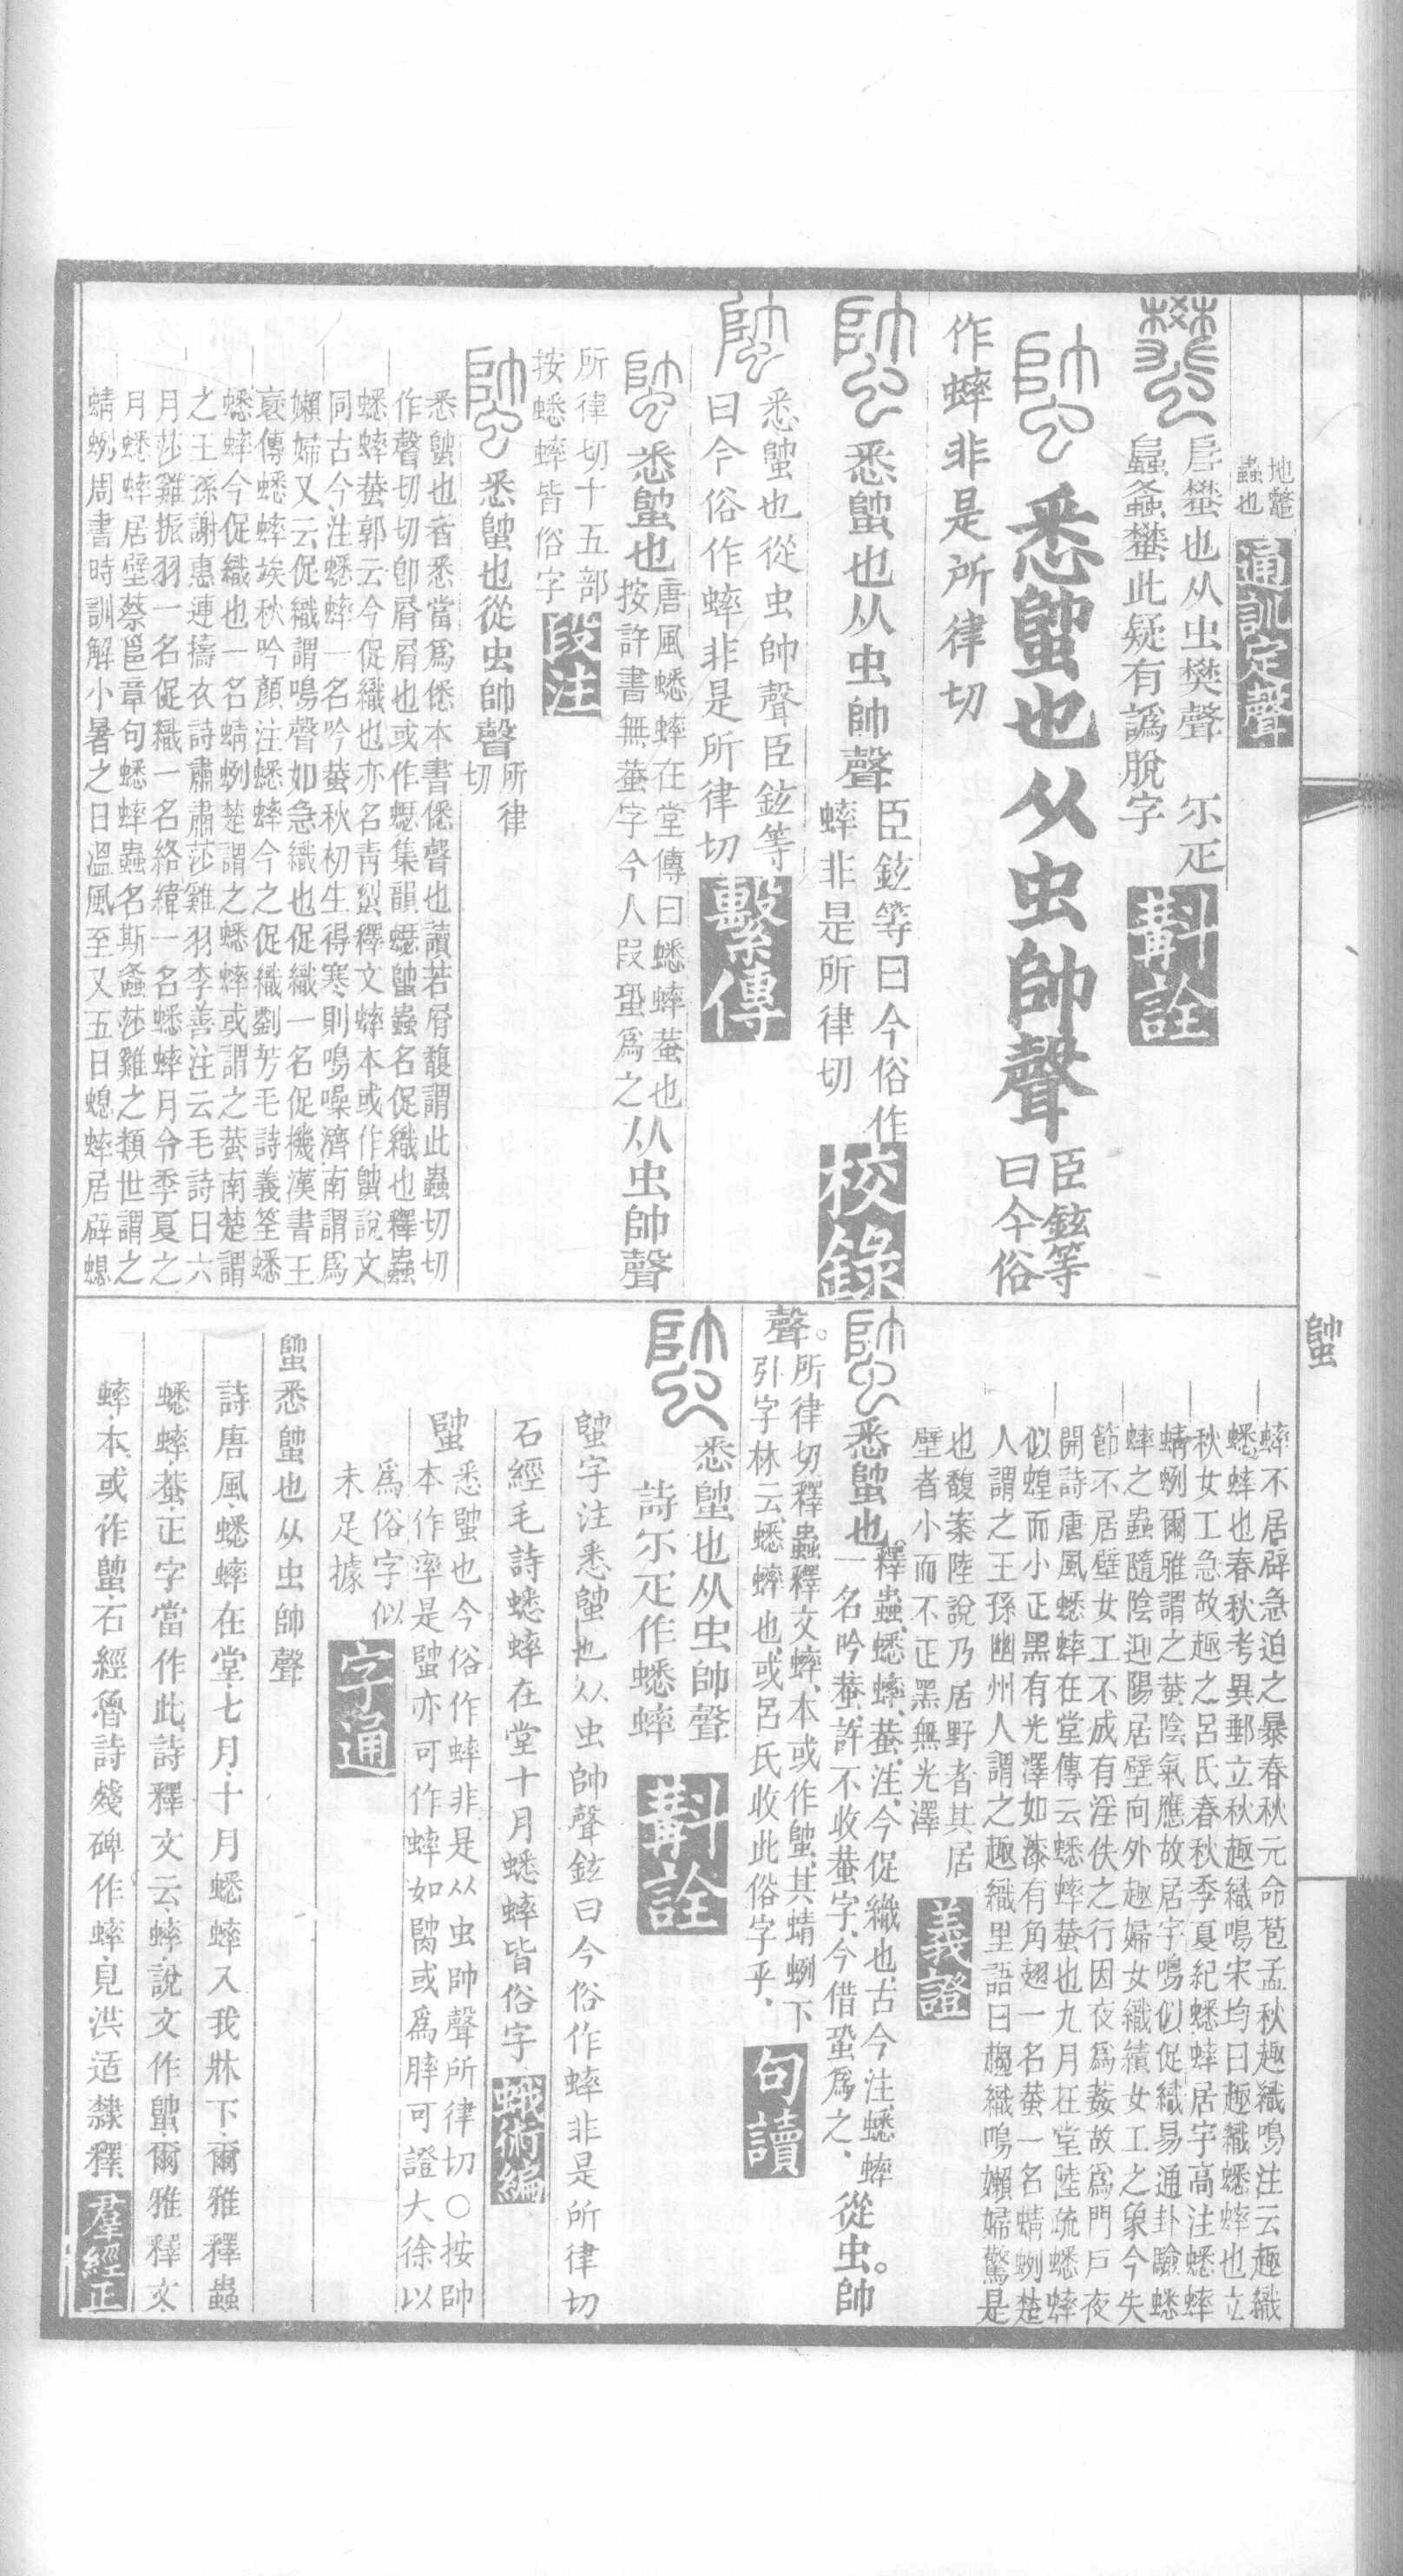 地鼈
蟲也
通訓定聲
𨸏蠜也从虫樊聲 尓疋
𨸏螽蠜此疑有譌脫字
斠詮
悉𧍓也从虫帥聲
臣鉉等
曰今俗
作蟀非是所律切
悉𧍓也从虫帥聲
臣鉉等曰今俗作
蟀非是所律切
校錄
悉𧍓也從虫帥聲臣鉉等
曰今俗作蟀非是所律切
繫傳
悉𧍓也
唐風蟋蟀在堂傳曰蟋蟀蛬也
按許書無蛬字今人叚蛩爲之
从虫帥聲
所律切十五部
按蟋蟀皆俗字
段注
悉𧍓也從虫帥聲
所律
切
悉𧍓也者悉當爲僁本書僁聲也讀若屑馥謂此蟲切切
作聲切切卽屑屑也或作蟋集韻蟋𧍓蟲名促織也釋蟲
蟋蟀蛬郭云今促織也亦名靑𧊿釋文蟀本或作𧍓說文
同古今注蟋蟀一名吟蛬秋初生得寒則鳴噪濟南謂爲
嬾婦又云促織謂鳴聲如急織也促織一名促機漢書王
襃傳蟋蟀俟秋吟顏注蟋蟀今之促織劉芳毛詩義筌蟋
蟋蟀今促織也一名蜻蛚楚謂之蟋蟀或謂之蛬南楚謂
之王孫謝惠連擣衣詩肅肅莎雞羽李善注云毛詩曰六
月莎雞振羽一名促織一名絡緯一名蟋蟀月令季夏之
月蟋蟀居壁蔡邕章句蟋蟀蟲名斯螽莎雞之類世謂之
蜻蛚周書時訓解小暑之日溫風至又五日蟋蟀居辟蟋
𧍓
蟀不居辟急迫之暴春秋元命苞孟秋趣織鳴注云趣織
蟋蟀也春秋考異郵立秋趣織鳴宋均曰趣織蟋蟀也立
秋女工急故趣之呂氏春秋季夏紀蟋蟀居宇高注蟋蟀
蜻蛚爾雅謂之蛬陰氣應故居宇鳴似促織易通卦驗蟋
蟀之蟲隨陰迎陽居壁向外趣婦女織績女工之象今失
節不居壁女工不成有淫佚之行因夜爲姦故爲門戶夜
開詩唐風蟋蟀在堂傳云蟋蟀蛬也九月在堂陸疏蟋蟀
似蝗而小正黑有光澤如漆有角翅一名蛬一名蜻蛚楚
人謂之王孫幽州人謂之趣織里語曰趨織鳴嬾婦驚是
也馥案陸說乃居野者其居
壁者小而不正黑無光澤
義證
悉𧍓也。
釋蟲、蟋蟀、蛬、注、今促織也、古今注、蟋蟀
一名吟蛬、許不收蛬字、今借蛩爲之、
從虫。帥
聲。
所律切釋蟲釋文蟀、本或作𧍓、其蜻蛚下
引字林云、蟋蟀也、或呂氏收此俗字乎、
句讀
悉𧍓也从虫帥聲
詩尓疋作蟋蟀
斠詮
𧍓字注悉𧍓也从虫帥聲鉉曰今俗作蟀非是所律切
石經毛詩蟋蟀在堂十月蟋蟀皆俗字
蛾術編
𧍓
悉𧍓也今俗作蟀非是从虫帥聲所律切○按帥
本作率是𧍓亦可作蟀如膟或爲膟可證大徐以
爲俗字似
未足據
字通
𧍓悉𧍓也从虫帥聲
詩唐風蟋蟀在堂七月十月蟋蟀入我牀下爾雅釋蟲
蟋蟀蛬正字當作此詩釋文云蟀說文作𧍓爾雅釋文
蟀本或作𧍓石經魯詩殘碑作蟀見洪适隸釋
羣經正